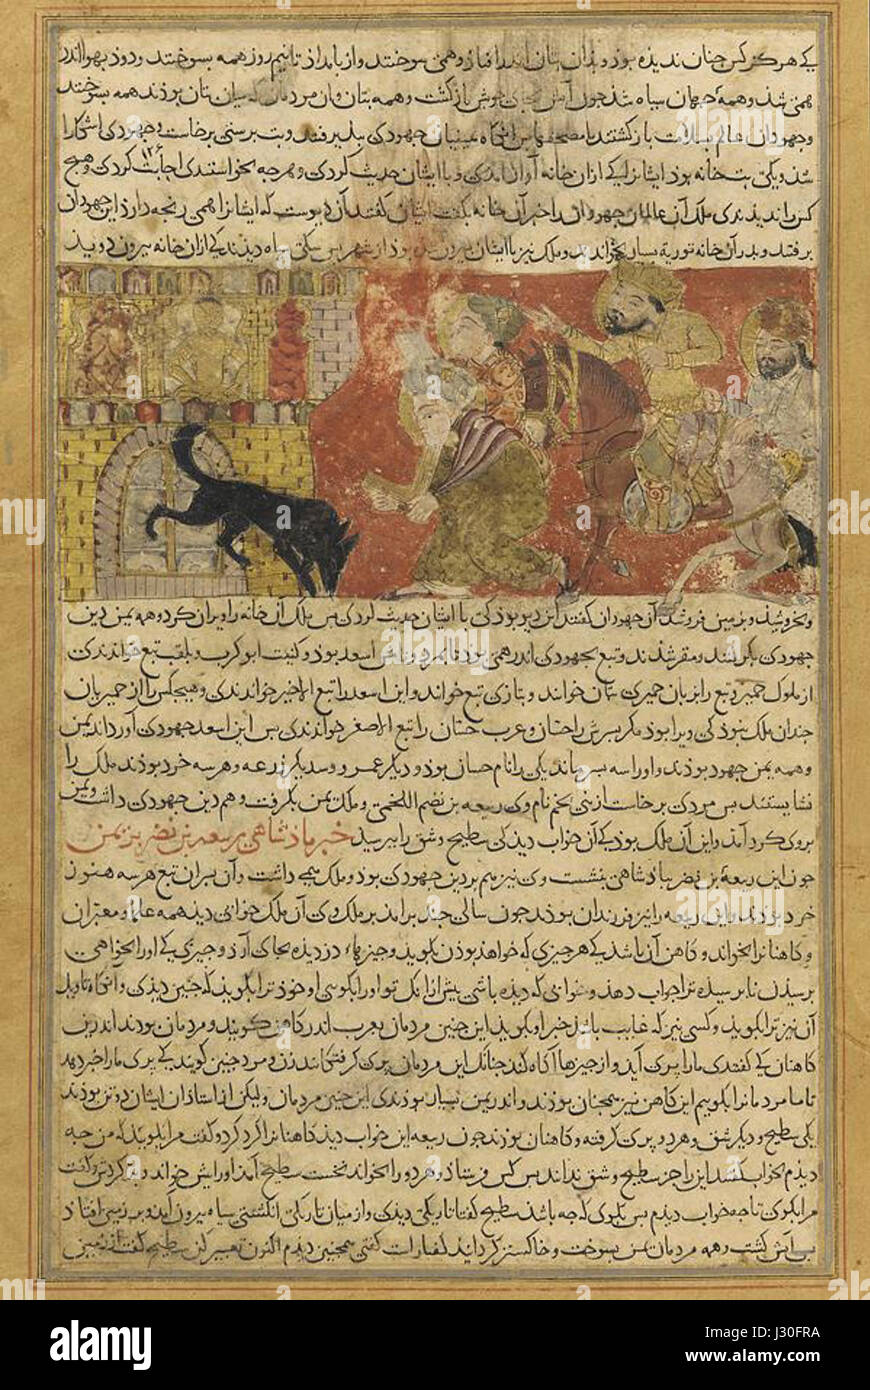 یکی هرگز کس چنان ندیده بوذ و بذان بتان اندر افتاذ و همی سوختند و از بامداذ تا نیم روز همه بسوختند و دوذ بهوا اندر
همی شذ و همهٔ جهان سیاه شذ جون آتش بجای خویش بازگشت و همه بتان و آن مردمان که میان بتان بوذند همه بسوختند
و جهودان عالم بسلامت بازگشتند با مصحفها پس آنگاه یمنیان جهودی بذیرفتند و بت برستی برخاست و جهودی آشکارا
شذ و یکی بت خانه بوذ ایشانرا کی از آن خانه آواز آمدی و با ایشان حدیث کردی و هرچه بخواستندی اجابت کردی و هیچ
کس را ندیذندی ملک آن عالمان جهودان را خبر آن خانه بگفت ایشان گفتند آن دیوست که ایشانرا همی رنجه دارذ این جهودان
برفتند و بدر آن خانه توریة بسیار بخواندند و ملک نیز با ایشان بیرون شذه بوذ از شهر بس سکی سیاه دیذند کی از آن خانه بیرون دویذ
و بخروشیذ و بزمین فرو شذ آن جهودان گفتند این دیو بوذ کی با ایشان حدیث کردی بس ملک آن خانه را ویران کرد و همه یمن دین
جهودی بگرفتند و مقر شذند و تبع بجهودی اندر همی بوذ تا بمرد و نامش اسعد بوذ و کنیت ابو کرب و بلقب تبع خواندندی
از ملوک حمیر و تبع را بزبان حمیری تبان خوانند و بتازی تبع خوانند و این اسعد را تبع الاخیر خواندندی و هیچکس را از حمیریان
چندان ملک نبوذ کی ویرا بوذ مگر بسرش را حسان و عرب حسان را تبع الاصغر خواندندی بس این اسعد جهودی آورد اندر یمن
و همه یمن جهود بوذند و او را سه بسر ماند یکی را نام حسان بوذ و دیگر عمرو و سدیگر زرعه و هر سه خرد بوذند ملک را
نشایستند بس مردی برخاست از بنی لخم نام وی ربیعه بن نضر اللخمی و ملک یمن بگرفت و هم دین جهودی داشت و یمن
بروی گرد آمذ و این آن ملک بوذ کی آن خواب دیذ کی سطیح و شق را ببرسیذ خبر باذشاهی ربیعه بن نضر بر یمن
جون این ربیعهٔ بن نضر بباذشاهی بنشست وی نیز هم بر دین جهودی بوذ و ملک همی داشت و آن بسران تبع هر سه هنوز
خرد بوذند و این ربیعه را نیز فرزندان بوذند جون سالی جند برآمذ بر ملک وی آن ملک خوابی دیذ همه علما و معبران
و کاهنانرا بخواند و کاهن آن باشذ کی هر جیزی که خواهذ بوذن بگویذ و جیزیهاء دزدیده بجای آرذ و جیزی کی او را بخواهی
برسیذن نابرسیذه ترا جواب دهذ و خوابی که دیذه باشی بیش از آنک تو او را بگوئی او خوذ ترا بگویذ که جنین دیذی و آنگاه تاویل
آن نیز ترا بگویذ و کسی نیز که غایب باشذ خبر او بگویذ این جنین مردمان بعرب اندر کاهن گویند و مردمان بوذند اندرین
کاهنان کی گفتندی ما را بری آیذ و از جیزها آگاه کند جنانک این مردمان بری گرفتگانند زن و مرد جنین گویند کی بری ما را خبر دهد
تا ما مردمانرا بگوییم این کاهن نیز همجنان بوذند و اندر یمن بسیار بوذندی این جنین مردمان ولیکن از استاذان ایشان دو تن بوذند
یکی سطیح و دیگر شق و هر دو بری گرفته و کاهنان بوذند جون ربیعه این خواب دیذ کاهنانرا گرد کرد و گفت مرا بگویید که من جه
دیذم بخواب گفتند این را جز سطیح و شق نداند بس کس فرستاذ و هر دو را بخواند نخست سطیح آمذ او را بیش خواند و بگفت
مرا بگوی تا جه خواب دیذم بس بگوی که جه باشذ سطیح گفتا تاریکی دیذی و از میان تاریکی انگشتی سیاه بیرون آمذ و بر زمین افتاذ
بی آتش گشت و همه مردمان یمن بسوخت و خاکستر گردانیذ گفتا راست گفتی همجنین دیذم اکنون تعبیر کن سطیح گفت زمین
alamy stock photo
J30FRA
www.alamy.com